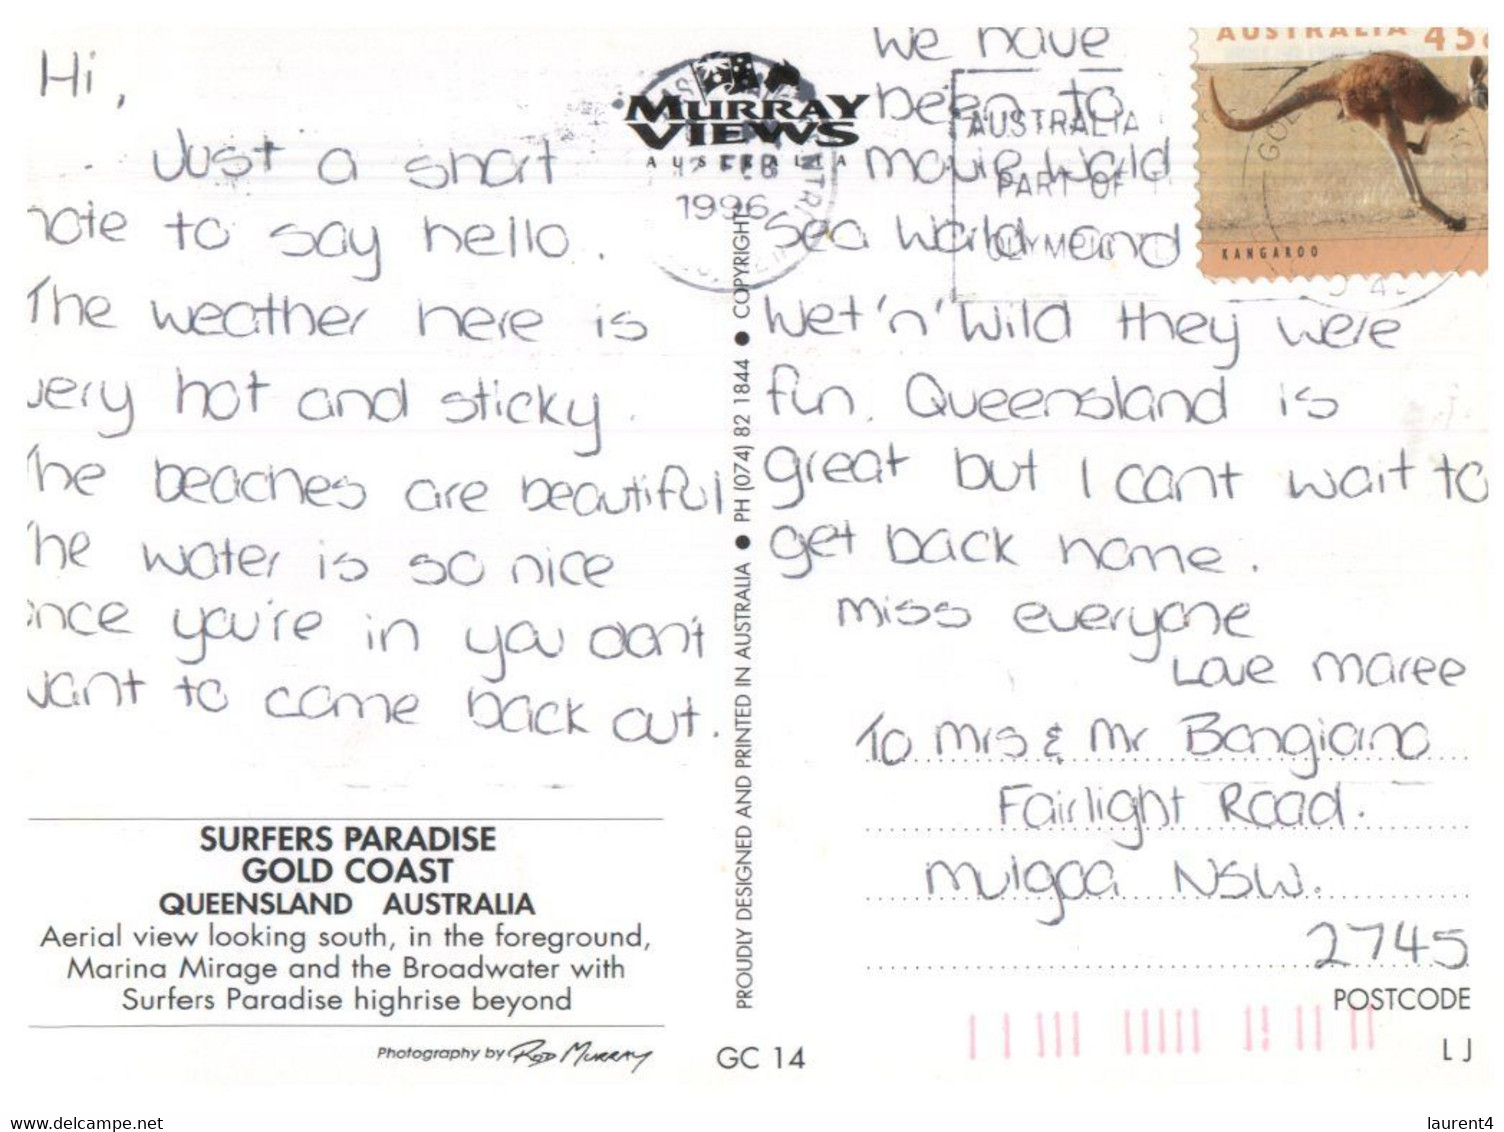 Hi,
Just a short
note to say hello.
The weather here is
very hot and sticky.
The beaches are beautiful
The water is so nice
once you're in you don't
want to come back out.
SURFERS PARADISE
GOLD COAST
QUEENSLAND AUSTRALIA
Aerial view looking south, in the foreground,
Marina Mirage and the Broadwater with
Surfers Paradise highrise beyond
Photography by Rod Murray
MURRAY
VIEWS
AUSTRALIA
FEB
1996
PROUDLY DESIGNED AND PRINTED IN AUSTRALIA ● PH (074) 82 1844 ● COPYRIGHT
GC 14
We have
been to
movie world
sea world and
Wet 'n' Wild they were
fun. Queensland is
great but I cant wait to
get back home.
miss everyone
Love maree
AUSTRALIA
PART OF
OLYMPIC
AUSTRALIA 45c
KANGAROO
To Mrs & Mr Bongiorno
Fairlight Road.
Mulgoa NSW.
2745
POSTCODE
LJ
delcampe.net
laurent4